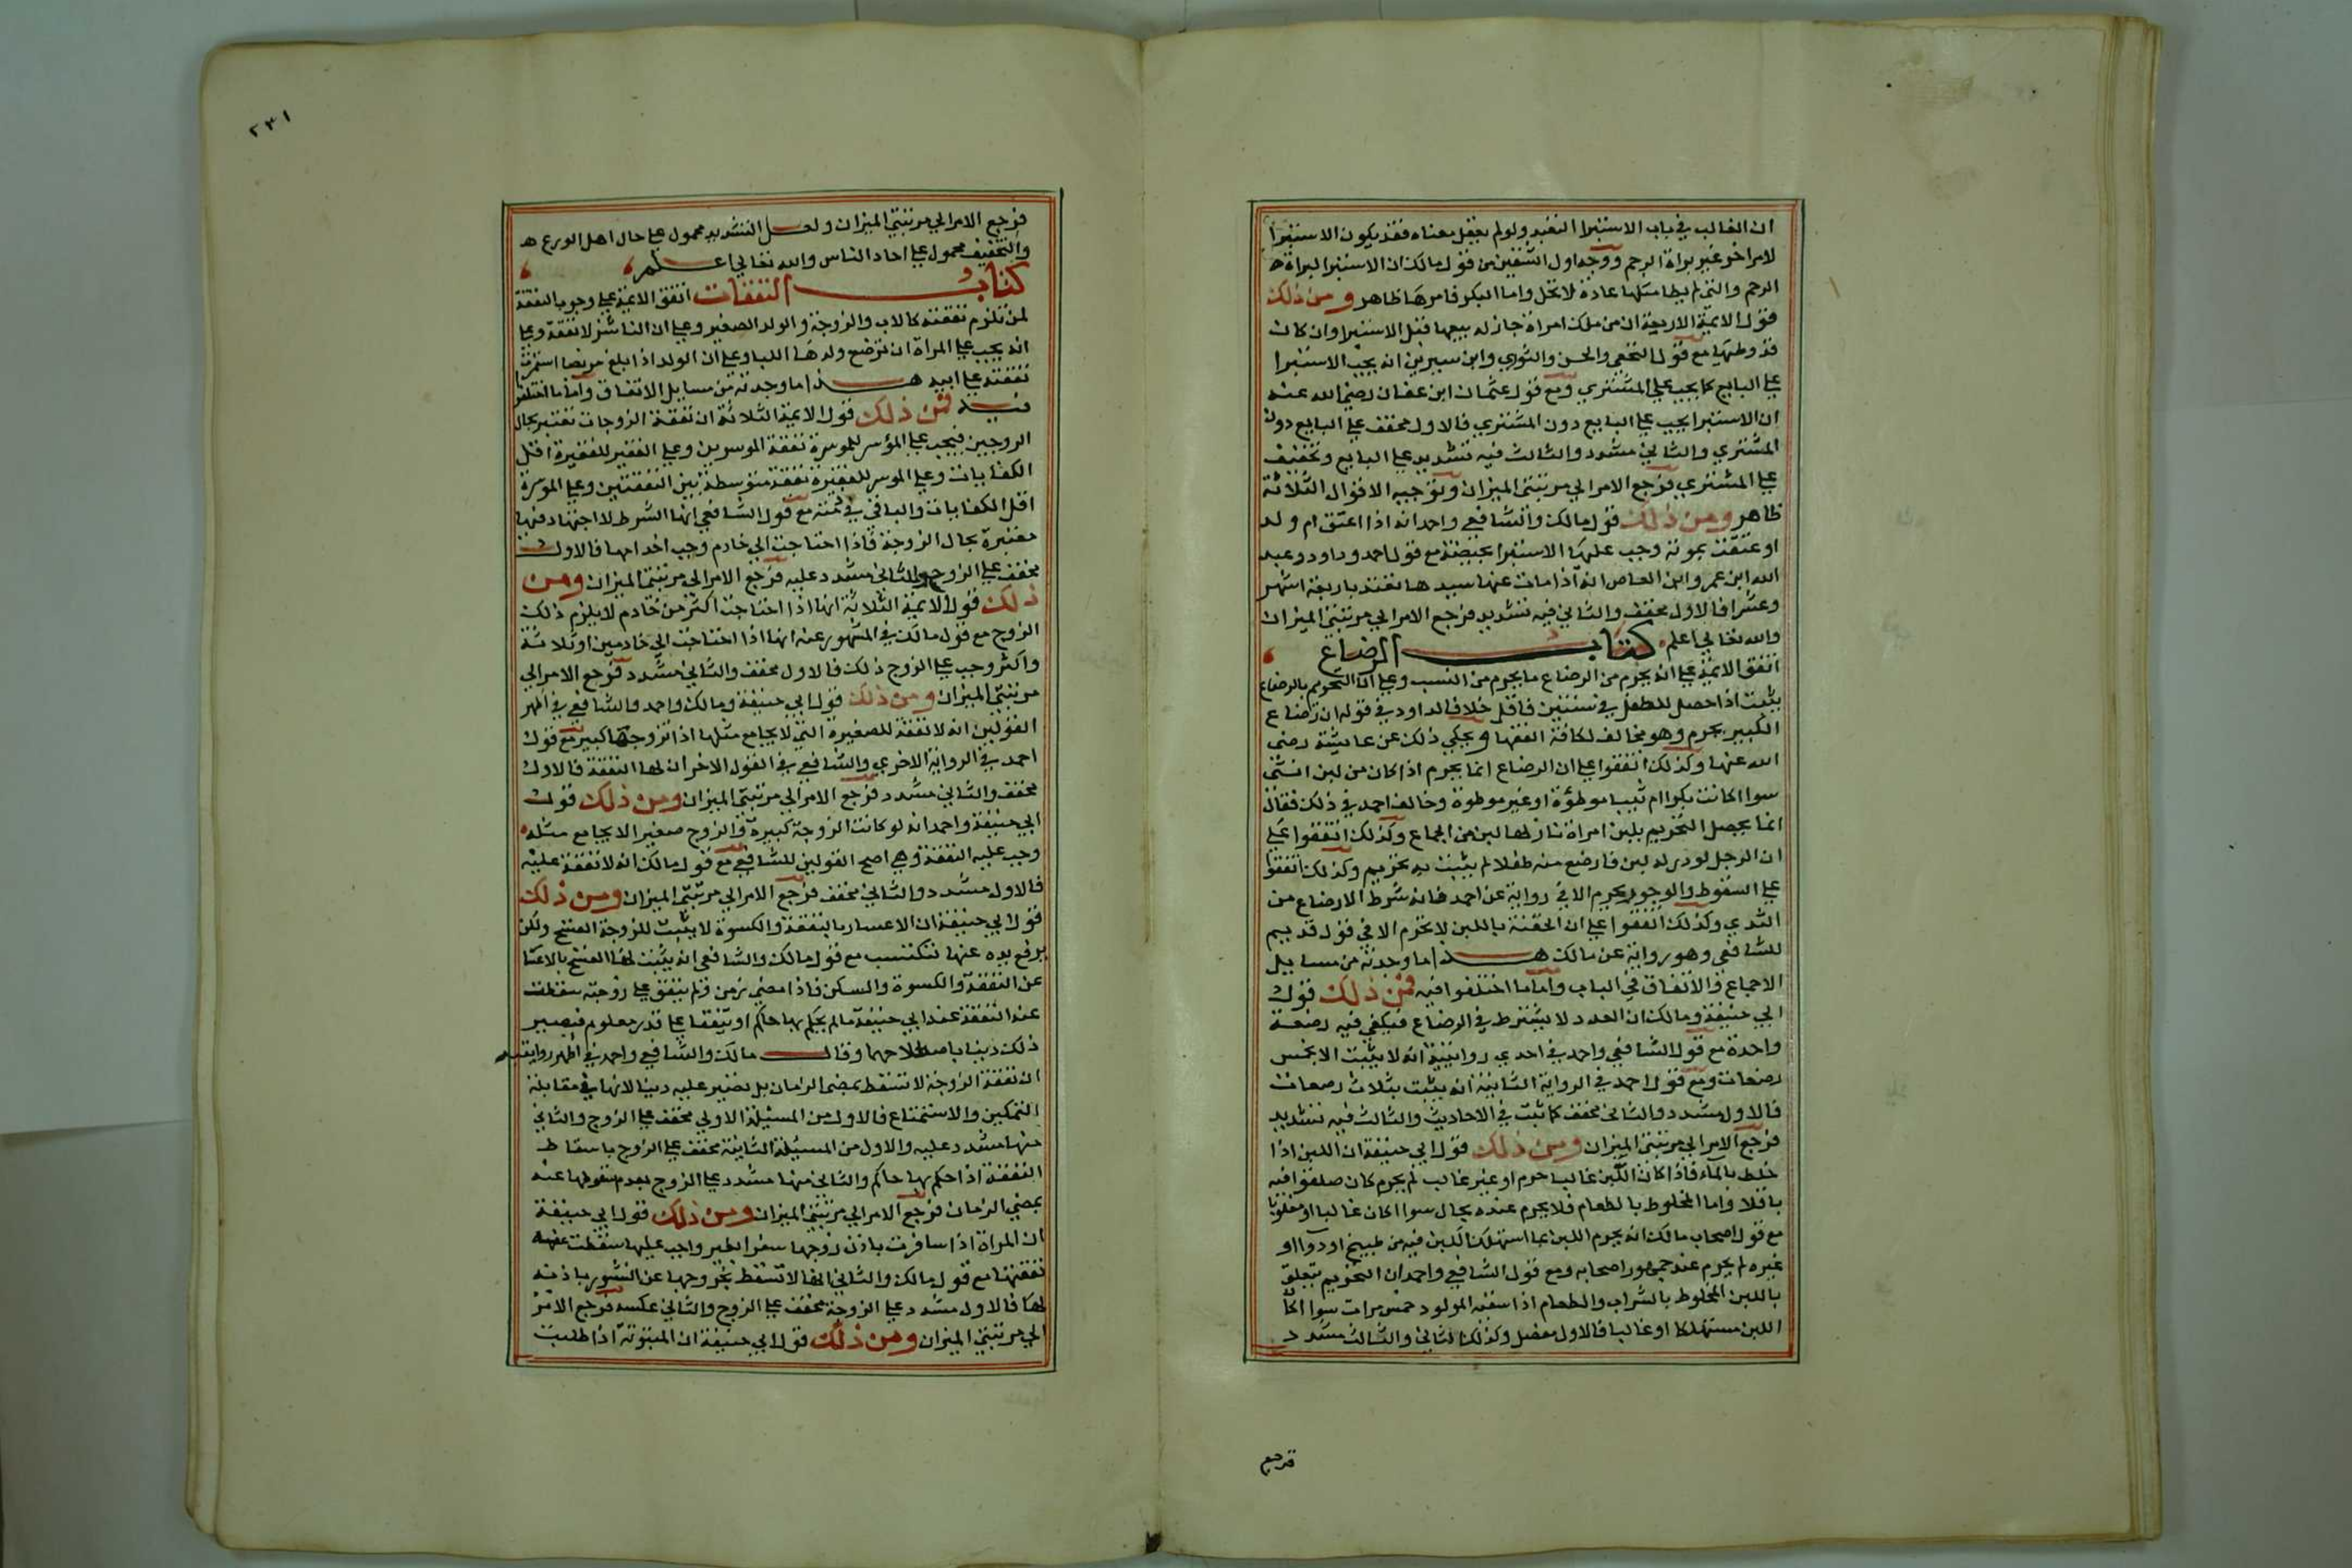 ان الغالب في باب الاستبرا التعبد ولو لم يعقل معناه فقد يكون الاستبرا
لامر اخر غير براة الرحم ووجه اول الشقين من قول مالك ان الاستبرا لبراة
الرحم والتي لم يطا مثلها عادة لا تحمل واما البكر فامرها ظاهر ومن ذلك
قول الايمة الاربعة ان من ملك امراة جاز له بيعها قبل الاستبرا وان كان
قد وطيها مع قول النخعي والحسن والثوري وابن سيرين انه يجب الاستبرا
علي البايع كما يجب علي المشتري ومع قول عثمان ابن عفان رضي الله عنه
ان الاستبرا يجب علي البايع دون المشتري فالاول مخفف علي البايع دون
المشتري والثاني مشدد والثالث فيه تشديد علي البايع وتخفيف
علي المشتري فرجع الامر الي مرتبتي الميزان وتوجيه الاقوال الثلاثة
ظاهر ومن ذلك قول مالك والشافعي واحمد انه اذا اعتق ام ولد
او عتقت بموته وجب عليها الاستبرا بحيضة مع قول احمد وداود وعبد
الله ابن عمرو ابن العاص انه اذا مات عنها سيدها تعتد باربعة اشهر
وعشرا فالاول مخفف والثاني فيه تشديد فرجع الامر الي مرتبتي الميزان
والله تعالي اعلم كتاب الرضاع
اتفق الايمة علي انه يحرم من الرضاع ما يحرم من النسب وعلي ان التحريم بالرضاع
يثبت اذا حصل للطفل في سنتين فاقل خلافا لداود في قوله ان رضاع
الكبير يحرم وهو مخالف لكافة الفقها ويحكي ذلك عن عايشة رضي
الله عنها وكذلك اتفقوا علي ان الرضاع انما يحرم اذا كان من لبن انثي
سوا اكانت بكرا ام ثيبا موطؤة او غير موطؤة وخالف احمد في ذلك فقال
انما يحصل التحريم بلبن امراة ثار لها لبن من الجماع وكذلك اتفقوا علي
ان الرجل لو در له لبن فارضع منه طفلا لم يثبت به تحريم وكذلك اتفقوا
علي السعوط والوجور يحرم الا في رواية عن احمد فانه شرط الارضاع من
الثدي وكذلك اتفقوا علي ان الحقنة باللبن لا تحرم الا في قول قديم
للشافعي وهو رواية عن مالك هذا ما وجدته من مسايل
الاجماع والاتفاق في الباب واما ما اختلفوا فيه فمن ذلك قول
ابي حنيفة ومالك ان العدد لا يشترط في الرضاع فيكفي فيه رضعة
واحدة مع قول الشافعي واحمد في احدي روايتيه انه لا يثبت الا بخمس
رضعات ومع قول احمد في الرواية الثانية انه يثبت بثلاث رضعات
فالاول مشدد والثاني مخفف كما ثبت في الاحاديث والثالث فيه تشديد
فرجع الامر الي مرتبتي الميزان ومن ذلك قول ابي حنيفة ان اللبن اذا
خلط بالماء فاذا كان اللبن غالبا حرم او غير غالب لم يحرم كان صلفوا فيه
باقلا واما المخلوط بالطعام فلا يحرم عنده بحال سوا اكان غالبا او مغلوبا
مع قول اصحاب مالك انه يحرم اللبن ما استهلك اللبن فيه من طبيخ او دوا او
غيره لم يحرم عند جمهور اصحابه ومع قول الشافعي واحمد ان التحريم يتعلق
باللبن المخلوط بالشراب والطعام اذا سقيه المولود خمس مرات سوا اكان
اللبن مستهلكا او غالبا فالاول مفصل وكذلك الثاني والثالث مشدد
فرجع
٢٣١
فرجع الامر الي مرتبتي الميزان ولعل التشديد محمول علي حال اهل الورع
والتخفيف محمول علي احاد الناس والله تعالي اعلم
كتاب النفقات اتفق الايمة علي وجوب النفقة
لمن تلزم نفقته كالاب والزوجة والولد الصغير وعلي ان الناشز لا نفقة وعلي
انه يجب علي المراة ان ترضع ولدها اللبا وعلي ان الولد اذا بلغ مريضا استمرت
نفقته علي ابيه هذا ما وجدته من مسايل الاتفاق واما ما اختلفوا
فيه فمن ذلك قول الايمة الثلاثة ان نفقة الزوجات تعتبر بحال
الزوجين فيجب علي المؤسر للموسرة نفقة الموسرين وعلي الفقير للفقيرة اقل
الكفايات وعلي الموسر للفقيرة نفقة متوسطة بين النفقتين وعلي الموسرة
اقل الكفايات والباقي في ذمته مع قول الشافعي انها الشرط لا اجتهاد فيها
معتبرة بحال الزوجة فاذا احتاجت الي خادم وجب اخدامها فالاول
مخفف علي الزوج والثاني مشدد عليه فرجع الامر الي مرتبتي الميزان ومن
ذلك قول الايمة الثلاثة انها اذا احتاجت اكثر من خادم لا يلزم ذلك
الزوج مع قول مالك في المشهور عنه انها اذا احتاجت الي خادمين او ثلاثة
واكثر وجب علي الزوج ذلك فالاول مخفف والثاني مشدد فرجع الامر الي
مرتبتي الميزان ومن ذلك قول ابي حنيفة ومالك واحمد والشافعي في اظهر
القولين انه لا نفقة للصغيرة التي لا يجامع مثلها اذا تزوجها كبير مع قول
احمد في الرواية الاخري والشافعي في القول الاخر ان لها النفقة فالاول
مخفف والثاني مشدد فرجع الامر الي مرتبتي الميزان ومن ذلك قول
ابي حنيفة واحمد انه لو كانت الزوجة كبيرة والزوج صغيرا لا يجامع مثله
وجب عليه النفقة وهي اصح القولين للشافعي مع قول مالك انه لا نفقة عليه
فالاول مشدد والثاني مخفف فرجع الامر الي مرتبتي الميزان ومن ذلك
قول ابي حنيفة ان الاعسار بالنفقة والكسوة لا يثبت للزوجة الفسخ ولكن
يرفع يده عنها لتكتسب مع قول مالك والشافعي انه يثبت لها الفسخ بالاعسار
عن النفقة والكسوة والسكن فاذا مضي زمن ولم ينفق علي زوجته سقطت
عنه النفقة عند ابي حنيفة ما لم يحكم بها حاكم او يتفقا علي قدر معلوم فيصير
ذلك دينا باصطلاحهما وقال مالك والشافعي واحمد في اظهر روايتيه
ان نفقة الزوجة لا تسقط بمضي الزمان بل تصير عليه دينا لانها في مقابلة
التمكين والاستمتاع فالاول من المسيلة الاولي مخفف علي الزوج والثاني
منها مشدد عليه والاول من المسيلة الثانية مخفف علي الزوج باسقاط
النفقة اذا حكم بها حاكم والثاني منها مشدد علي الزوج بعدم سقوطها عنه
بمضي الزمان فرجع الامر الي مرتبتي الميزان ومن ذلك قول ابي حنيفة
ان المراة اذا سافرت باذن زوجها سفرا غير واجب عليها سقطت عنه
نفقتها مع قول مالك والثاني انها لا تسقط بخروجها عن النشوز باذنه
لها فالاول مشدد علي الزوجة مخفف علي الزوج والثاني عكسه فرجع الامر
الي مرتبتي الميزان ومن ذلك قول ابي حنيفة ان المبتوتة اذا طلبت